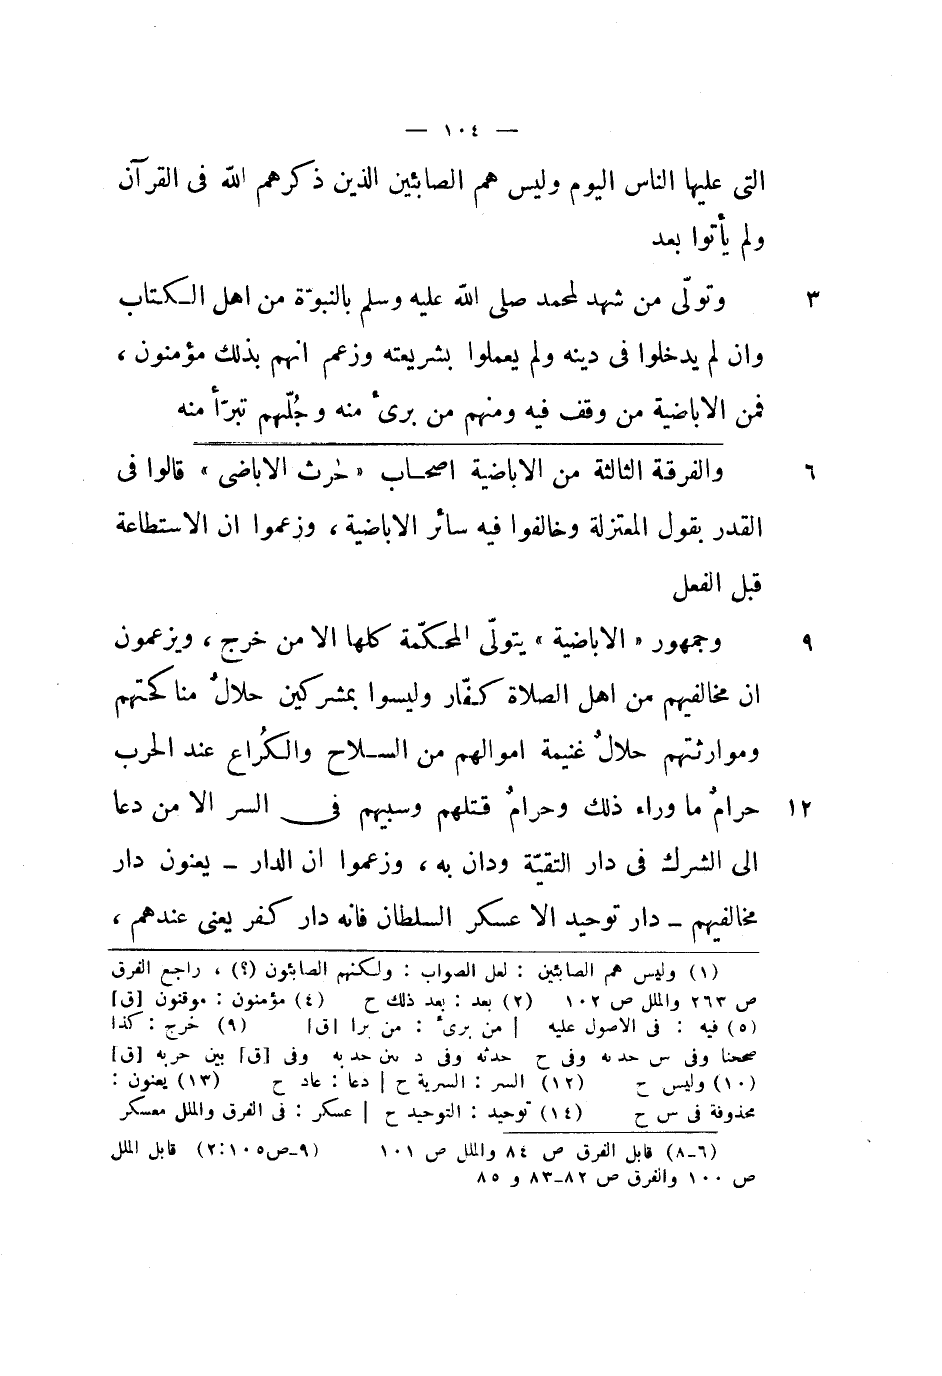 — ١٠٤ —
التى عليها الناس اليوم وليس هم الصابئين الذين ذكرهم اللّه فى القرآن
ولم يأتوا بعد
٣ وتولّى من شهد لمحمد صلى اللّه عليه وسلم بالنبوّة من اهل الكتاب
وان لم يدخلوا فى دينه ولم يعملوا بشريعته وزعم انهم بذلك مؤمنون ،
فمن الاباضية من وقف فيه ومنهم من برئ منه وجُلّهم تبرّأ منه
٦ والفرقة الثالثة من الاباضية اصحاب « لحرث الاباضى » قالوا فى
القدر بقول المعتزلة وخالفوا فيه سائر الاباضية ، وزعموا ان الاستطاعة
قبل الفعل
٩ وجمهور « الاباضية » يتولّى المحكّمة كلها الا من خرج ، ويزعمون
ان مخالفيهم من اهل الصلاة كفّار وليسوا بمشركين حلالٌ مناكحتهم
وموارثتهم حلالٌ غنيمة اموالهم من السلاح والكُراع عند الحرب
١٢ حرامٌ ما وراء ذلك وحرامٌ قتلهم وسبيهم فى السر الا من دعا
الى الشرك فى دار التقيّة ودان به ، وزعموا ان الدار ـ يعنون دار
مخالفيهم ـ دار توحيد الا عسكر السلطان فانه دار كفر يعنى عندهم ،
(١) وليس هم الصابئين : لعل الصواب : ولكنهم الصابئون (؟) ، راجع الفرق
ص ٢٦٣ والملل ص ١٠٢ (٢) بعد : بعد ذلك ح (٤) مؤمنون : موقنون [ق]
(٥) فيه : فى الاصول عليه | من برئ : من برا [ق] (٩) خرج : كذا
صححنا وفى س حدىه وفى ح حدثه وفى د ىىن حدىه وفى [ق] بين حربه [ق]
(١٠) وليس ح (١٢) السر : السرية ح | دعا : عاد ح (١٣) يعنون :
محذوفة فى س ح (١٤) توحيد : التوحيد ح | عسكر : فى الفرق والملل معسكر
(٦ـ٨) قابل الفرق ص ٨٤ والملل ص ١٠١ (٩ـص١٠٥:٢) قابل الملل
ص ١٠٠ والفرق ص ٨٢ـ٨٣ و ٨٥